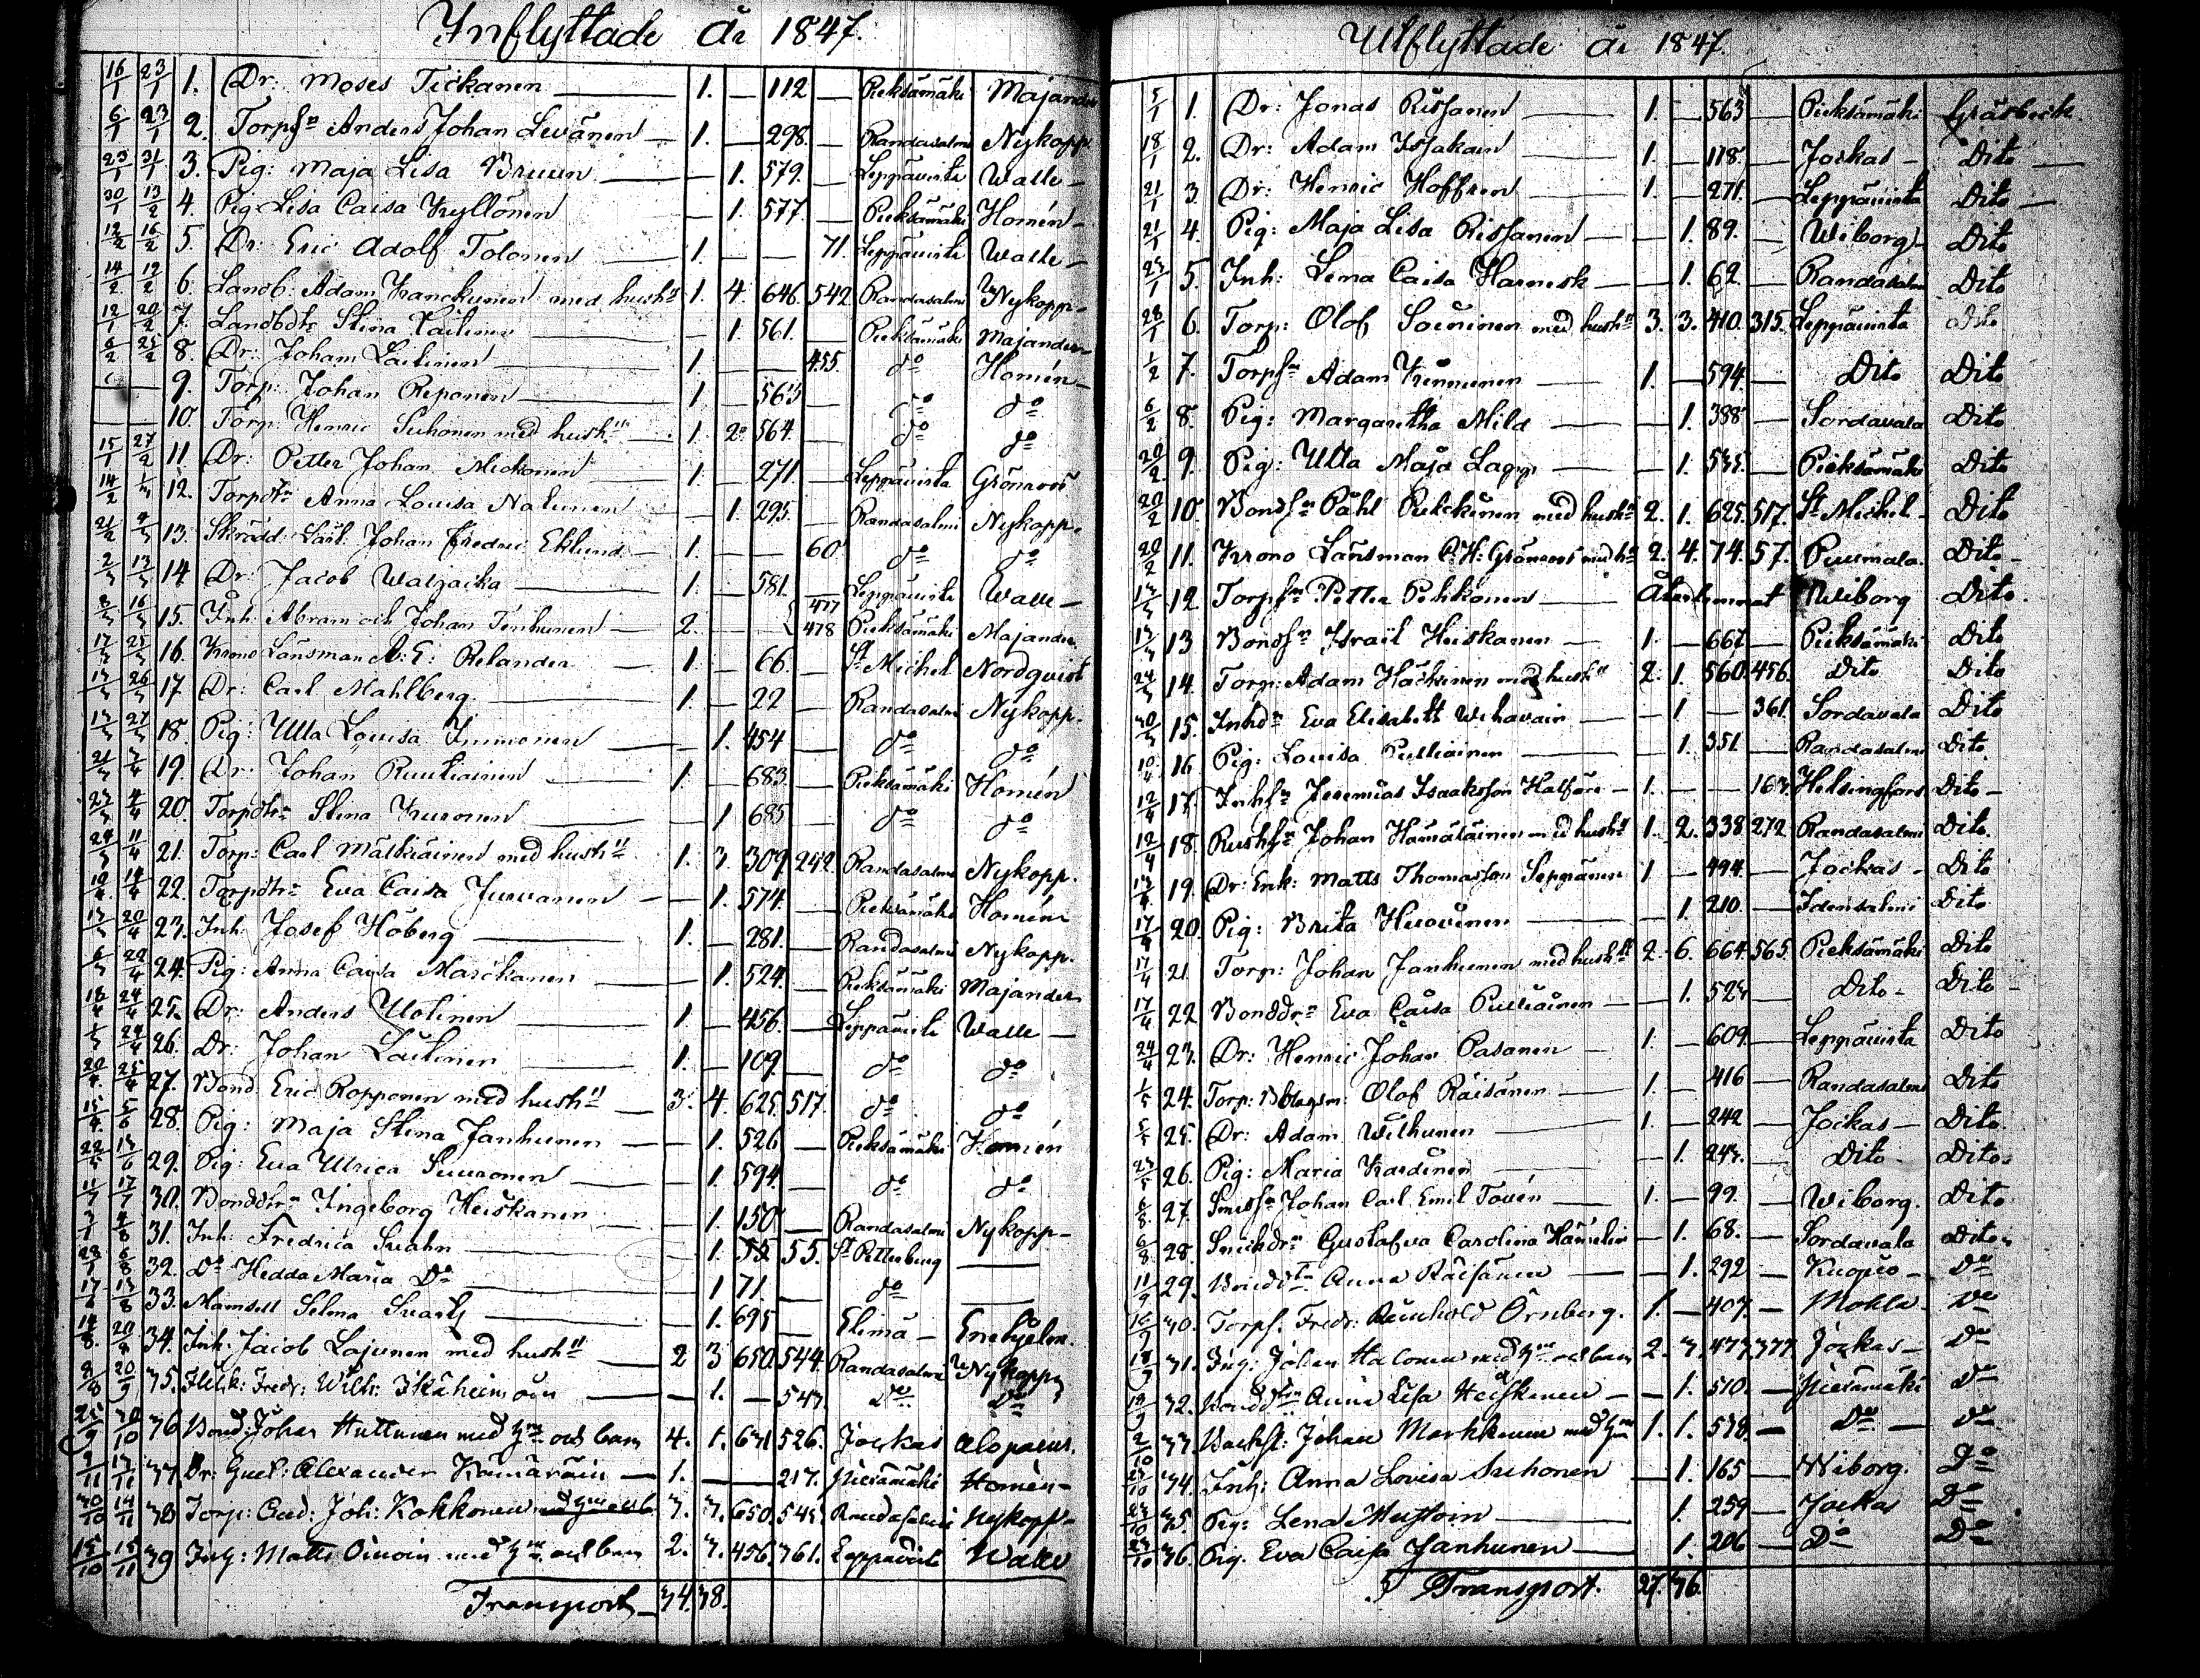 Inflyttade År 1847.
16/1 23/1 1. Dr: Moses Tickanen 1. — 112 — Pieksämäki Majander
6/1 23/1 2. Torpsn Anders Johan Levänen 1. — 298. — Randasalmi Nykopp
23/1 31/1 3. Pig: Maja Lisa Bruun — 1. 579. — Leppävirta Walle
30/1 13/2 4. Pig Lisa Caisa Kyllönen — 1. 577. — Pieksämäki Homén
12/2 16/2 5. Dr: Eric Adolf Tolonen 1. — — 71. Leppävirta Walle
14/2 19/2 6. Landb: Adam Kranckunen med hush:ll 1. 4. 646. 542. Randasalmi Nykopp
12/1 20/2 7. Landbdtr Stina Laitinen — 1. 561. — Pieksämäki Majander
6/2 25/2 8. Dr: Johan Laitinen 1. — — 455. do Homén
— — 9. Torp: Johan Reponen 1 — 563 — do do
— — 10. Torp: Henric Suhonen med hush:ll 1. 2. 564. — do do
15/1 27/2 11. Dr: Petter Johan Mickonen 1. — 271 — Leppävirta Grönroos
14/2 1/3 12. Torpdtr Anna Lovisa Nalunen — 1. 295. — Randasalmi Nykopp.
21/2 7/3 13. Skrädd: Lärl: Johan Fredric Eklund 1. — — 60 do do
2/3 13/3 14. Dr: Jacob Waljacka 1. — 581. — Leppävirta Walle
8/3 16/3 15. Inh: Abram och Johan Tenhunen 2. — — 477 478 Pieksämäki Majander
17/3 25/3 16. Krono Länsman A: E: Relander 1. — 66. — St Michel Nordqvist
13/3 26/3 17. Dr: Carl Mahlberg 1. — 22 — Randasalmi Nykopp.
13/3 27/3 18. Pig: Ulla Lovisa Immonen — 1. 454 — do do
21/3 3/4 19. Dr: Johan Ruutiainen 1. — 683. — Pieksämäki Homén
23/3 4/4 20. Torpdtr Stina Kuronen — 1 685 — do do
24/3 11/4 21. Torp: Carl Malkiäinen med hush:ll 1. 3. 309 242. Randasalmi Nykopp.
10/4 14/4 22. Torpdtr Eva Caisa Juvvanen — 1. 574. — Pieksämäki Homén
13/3 20/4 23. Inh: Josef Höberg 1. — 281. — Randasalmi Nykopp.
6/3 22/4 24. Pig: Anna Caisa Marckanen — 1. 524. — Pieksämäki Majander
18/4 24/4 25. Dr: Anders Uotinen 1. — 456. — Leppävirta Walle
1/3 24/4 26. Dr: Johan Laitinen 1. — 109. — do do
20/4 25/4 27. Bond. Eric Ropponen med hush:ll 3. 4. 625. 517. do do
15/4 5/6 28. Pig: Maja Stina Janhunen — 1. 526 — Pieksämäki Homén
22/5 13/6 29. Pig: Eva Ulrica Suuronen — 1. 594. — do do
11/7 17/7 30. Bonddtr Ingeborg Heiskanen — 1. 150. — Randasalmi Nykopp
3/7 4/8 31. Inh: Fredrica Svahn — 1. 55 55. St Petersburg
28/1 6/8 32. Do Hedda Maria Do 1 71. — do
33. Mamsell Selma Svartz — 1. 695 — Elimä Enehjelm.
34. Inh: Jacob Lajunen med hush:ll 2 3 650. 544. Randasalmi Nykopp
35. Fredr: Wilh: — 1. — 543. Do Do
36 Bond: Johan Huttunen med h:u och barn 4. 1. 631 526. Jockas Alopaeus.
37. Dr: Gust: Alexander Kämäräin 1. — — 217. Pieksämäki Homén
38 Torp: And: Joh: Kokkonen 3. 3. 650. 545. Randasalmi Nykopp
39 Inh: Matts Oinoin med h:u och barn 2. 3. 456. 361. Leppävirta Walle
Transport 34. 38.
Utflyttade År 1847.
5/1 1. Dr: Jonas Rissanen 1. — 563 — Pieksämäki Gråsbeck.
18/1 2. Dr: Adam Issakain 1. — 118. — Jockas Dito
21/1 3. Dr: Henric Hoffren 1. — 271. — Leppävirta Dito
21/1 4. Pig: Maja Lisa Rissanen — 1. 89. — Wiborg Dito
23/1 5. Inh: Lena Caisa Harnesk — 1. 62. — Randasalmi Dito
28/1 6. Torp: Olof Soininen med hush:ll 3. 3. 410. 315. Leppävirta Dito
1/2 7. Torpsn Adam Kinnunen 1. — 594. — Dito Dito
6/2 8. Pig: Margaretha Mild — 1. 388 — Sordavala Dito
20/2 9. Pig: Ulla Maja Lapp — 1. 535. — Pieksämäki Dito
20/2 10. Bondsn Påhl Pulckinen med hush:ll 2. 1. 625. 517. St Michel Dito
20/2 11. Krono Länsman C. H: Grönroos med h:ll 2. 4. 74. 57. Puumala. Dito
13/3 12 Torpsn Petter Pehkonen Återkommit Wiborg Dito.
13/3 13 Bondsn Israel Heiskanen 1. — 667 — Pieksämäki Dito
24/3 14. Torp: Adam Häckinen med hush:ll 2. 1. 560. 456. Dito Dito
30/3 15. Inhdr Eva Elisabeth Wehavain — 1 — 361. Sordavala Dito
10/4 16 Pig: Lovisa Pulliainen — 1. 351 — Randasalmi Dito
12/4 17. Inhsn Jeremias Isaaksson Halfare 1. — — 163. Helsingfors Dito
12/4 18. Rusthsn Johan Hämäläinen med hush:ll 1. 2. 338. 272. Randasalmi Dito.
13/4 19. Dr: Enk: Matts Thomasson Seppänen 1 — 494. — Jockas Dito
17/4 20. Pig: Brita Huovinen — 1. 210. — Idensalmi Dito
17/4 21. Torp: Johan Janhunen med hush:ll 2. 6. 664. 565. Pieksämäki Dito
17/4 22 Bonddr Eva Caisa Pulliainen — 1. 523 — Dito Dito
24/4 23. Dr: Henric Johan Pasanen 1. — 609. — Leppävirta Dito
1/5 24. Torp: Olof Räisänen 1. — 416 — Randasalmi Dito
5/5 25. Dr: Adam Wilhunen 1. — 242 — Jockas Dito.
23/5 26. Pig: Maria Kardinen — 1. 243. — Dito Dito
6/8 27. Smedsn Johan Carl Emil Tovén 1. — 99. — Wiborg. Dito
6/8 28. Gustafva Carolina — 1. 68. — Sordavala Dito
11/9 29. Anna Räisänen — 1. 292 — Kuopio Do
30. Torps. Fredr: Reinhold Örnberg. 1. — 407. — Mohla Do
31. Inh: Johan Halonen med h:u och barn 2. 3. 473 377 Jockas Do
32. Anna Lisa Heiskanen — 1. 510. — Pieksämäki Do
33. Johan Markkanen med h:u 1. 1. 578. — Do Do
34. Inh: Anna Lovisa Suhonen — 1. 165 — Wiborg. Do
35 Pig: Lena Mustoin 1. 259 — Jockas Do
36. Pig. Eva Caisa Janhunen 1. 206 — Do Do
Transport. 27. 36.